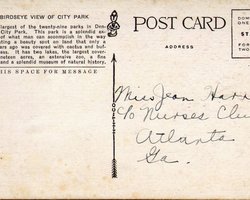 BIRDSEYE VIEW OF CITY PARK
largest of the twenty-nine parks in Den-
City Park. This park is a splendid ex-
of what man can accomplish in the way
ting a beauty spot on land that only a
ars ago was covered with cactus and buf-
ss. It has two lakes, the larger cover-
neteen acres, an extensive zoo, a fine
and a splendid museum of natural history.
HIS SPACE FOR MESSAGE
POST CARD
ADDRESS
Miss Jean Harr
c/o Nurses Clu
Atlanta
Ga.